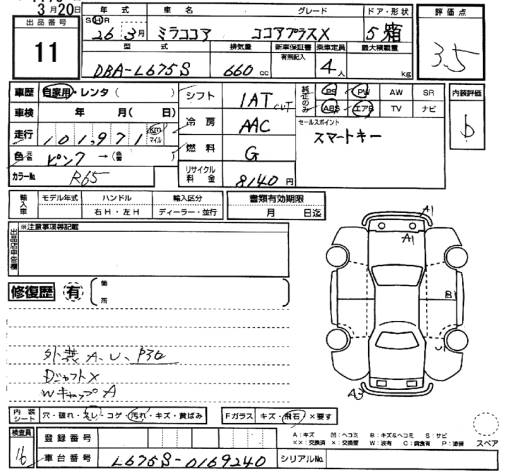 3月20日
出品番号
11
年式 車名 グレード ドア・形状
S H R
26年 3月 ミラココア ココアプラスX 5 箱
型式 排気量 新車保証書 有無記入 乗車定員 最大積載量
DBA-L675S 660 cc 4人 kg
評価点
3.5
車歴 自家用・レンタ( )
車検 年 月( 日)
走行 101,971 km マイル
色 ピンク →(色 替 )
カラーNo. R65
シフト 1AT CVT
冷房 AAC
燃料 G
リサイクル料金 8140円
純正のみ
PS PW AW SR
ABS エアB TV ナビ
セールスポイント
スマートキー
内装評価
D
輸入車
モデル年式 ハンドル 輸入区分
右H・左H ディーラー・並行
書類有効期限
月 日迄
※注意事項等記載
修復歴 有 箇所
外装 A、U、
Dシャフト X
Wキャップ A
A1
A1
B1
U1
A3
内装シート 穴・破れ・スレ・コゲ・汚れ・キズ・黄ばみ
Fガラス キズ・飛石・×要す
A:キズ M:ヘコミ B:キズ&ヘコミ S:サビ
××:交換済 ×:交換要 W:波有 C:腐食有 P:塗装
スペア
検査員
16
登録番号
車台番号 L675S-0169240 シリアルNo.